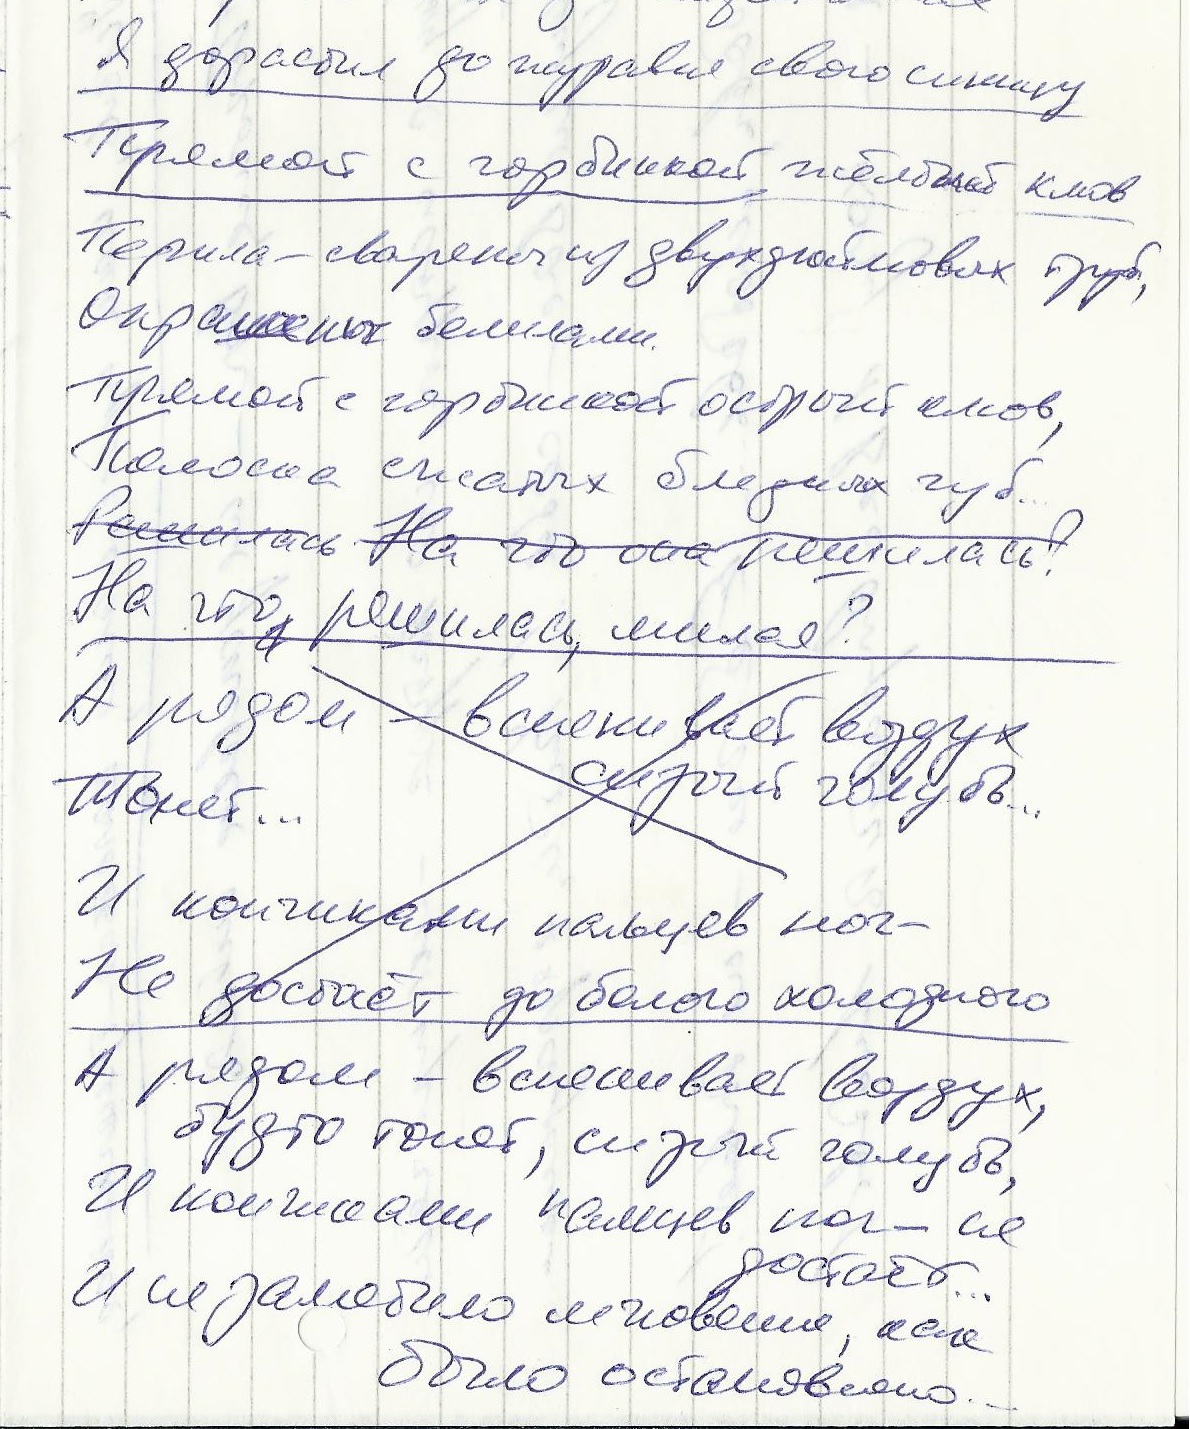 Я дорастил до журавля свого синицу
Прямой с горбинкой жёлтый клюв
Перила – сварены из двухдюймовых труб,
Окрашеных белилами.
Прямой с горбинкой острый клюв,
Полоска сжатых бледных губ...
Решилась На что она решилась?
На что, решилась, милая?
А рядом – вспенивает воздух
сизый голубь...
Тонет...
И кончиками пальцев ног –
Не достаёт до белого холодного
А рядом – вспенивает воздух,
будто тонет, сизый голубь,
И кончиками пальцев ног – не
достаёт...
И не заметило мгновение, как
было остановлено...